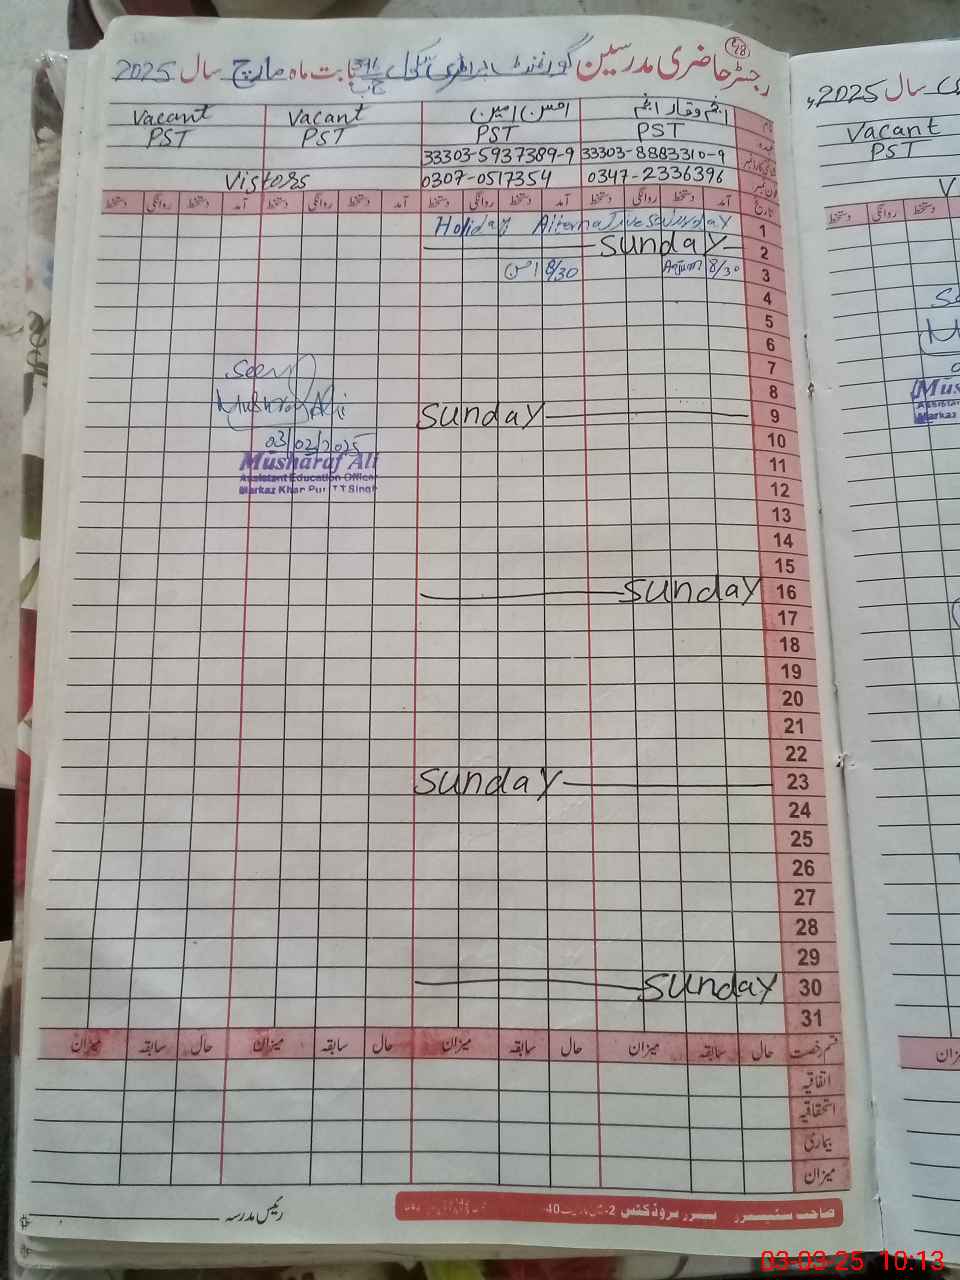 رجسٹر حاضری مدرسین گورنمنٹ پرائمری سکول 391 ج ب بابت ماہ مارچ سال 2025
نام Vacant Vacant
عہدہ PST PST PST PST
33303-8883310-9 33303-5937389-9
فون نمبر 0347-2336396 0307-0517354 Vistors
تاریخ آمد دستخط روانگی دستخط آمد دستخط روانگی دستخط آمد دستخط روانگی دستخط آمد دستخط روانگی دستخط
1 Holiday
2 Sunday
3 8/30 8/30
4
5
6
7
8
9 Sunday
10
11
12
13
14
15
16 Sunday
17
18
19
20
21
22
23 Sunday
24
25
26
27
28
29
30 Sunday
31
Seen
03/02/2025
Musharaf Ali
Assistant Education Officer
قسم رخصت حال سابقہ میزان حال سابقہ میزان حال سابقہ میزان حال سابقہ میزان
اتفاقیہ
استحقاقیہ
بیماری
میزان
رئیس مدرسہ
سال 2025
Vacant
PST
دستخط روانگی دستخط
میزان
03-03-25 10:13